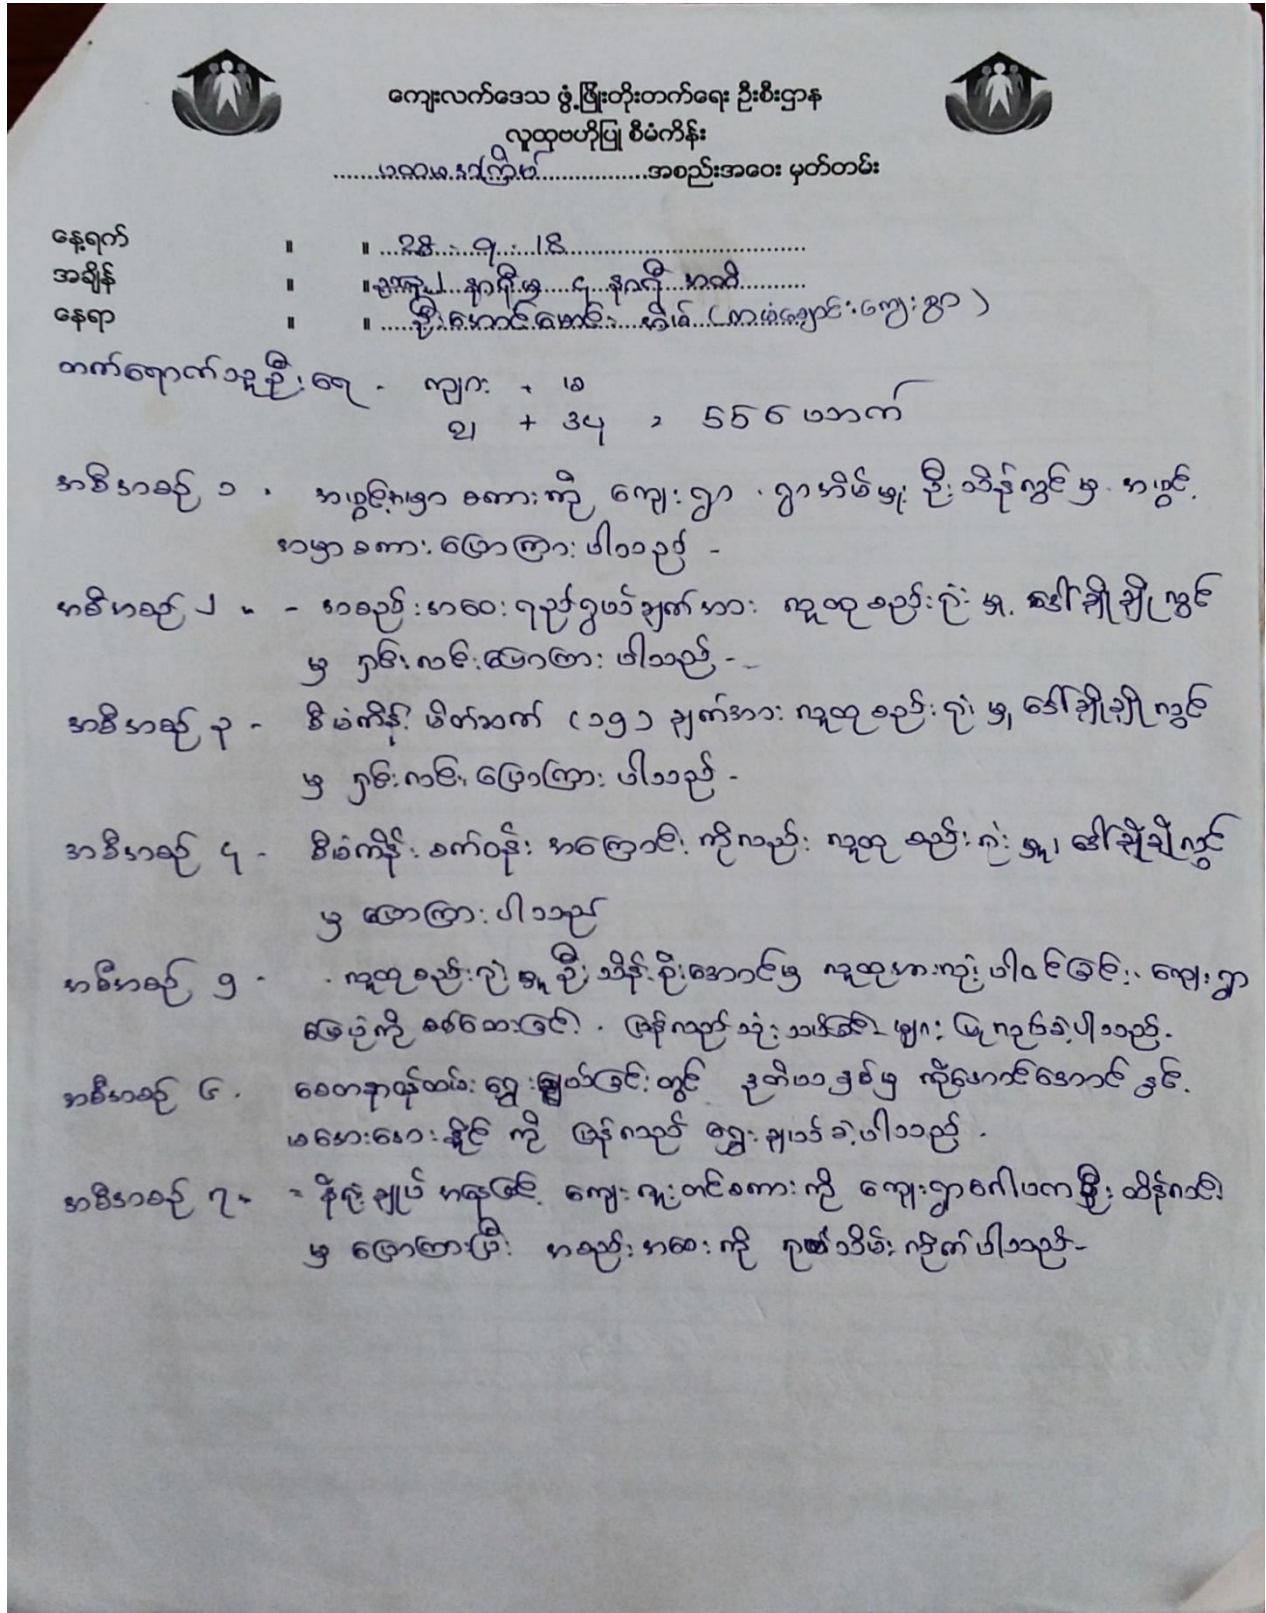 ကျေးလက်ဒေသ ဖွံ့ဖြိုးတိုးတက်ရေး ဦးစီးဌာန
လူထုဗဟိုပြု စီမံကိန်း
ပထမအကြိမ် အစည်းအဝေး မှတ်တမ်း
နေ့ရက် ။ ။ 28 . 9 . 18
အချိန် ။ ။ နာရီမှ ၄ နာရီ အထိ
နေရာ ။ ။ ဦးအောင်မောင်း အိမ် ( ကျေးရွာ )
တက်ရောက်သူဦးရေ - ကျား + မ
၃၄ = 55
အစီအစဉ် ၁ . အဖွင့်အမှာ စကားကို ကျေးရွာ . ရွာအိမ်မှူး ဦးသိန်းလွင်မှ အဖွင့်
အမှာစကား ပြောကြားပါသည် -
အစီအစဉ် ၂ ။ - အစည်းအဝေး ရည်ရွယ်ချက်အား လူထုစည်းရုံးမှူ ဒေါ်ချိုချိုလွင်
မှ ရှင်းလင်းပြောကြား ပါသည် -
အစီအစဉ် ၃ - စီမံကိန်း မိတ်ဆက် (၁၅) ချက်အား လူထုစည်းရုံးမှူ ဒေါ်ချိုချိုလွင်
မှ ရှင်းလင်း ပြောကြား ပါသည် -
အစီအစဉ် ၄ - စီမံကိန်း စက်ဝန်း အကြောင်းကိုလည်း လူထု စည်းရုံးမှူ၊ ဒေါ်ချိုချိုလွင်
မှ ပြောကြား ပါသည်
အစီအစဉ် ၅ - . လူထုစည်းရုံးမှူ ဦးသိန်းစိုးအောင်မှ လူထုအားလုံး ပါဝင်ခြင်း၊ ကျေးရွာ
မြေပုံကို စစ်ဆေးခြင်း . ပြန်လည်သုံးသပ်ခြင်းများ ပြုလုပ်ခဲ့ပါသည်.
အစီအစဉ် ၆ . စေတနာ့ဝန်ထမ်း ရွေးချယ်ခြင်းတွင် ကိုအောင်အောင် နှင့်
မအေးအေးနိုင် ကို ပြန်လည် ရွေးချယ်ခဲ့ပါသည် .
အစီအစဉ် ၇ ။ = နိဂုံးချုပ် အနေဖြင့် ကျေးဇူးတင်စကားကို ကျေးရွာ ဦးထိန်လင်း
မှ ပြောကြားပြီး အစည်းအဝေးကို ရုတ်သိမ်းလိုက်ပါသည် -